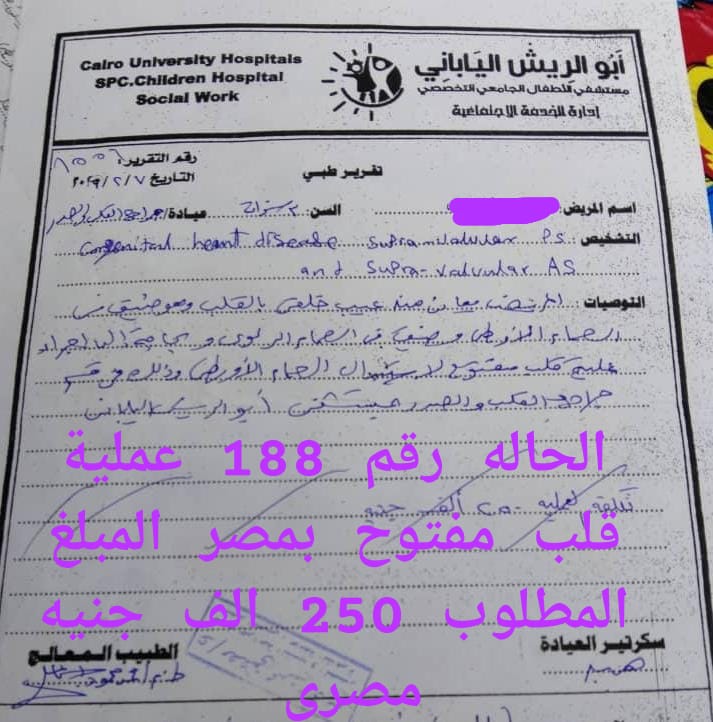 Cairo University Hospitals
SPC.Children Hospital
Social Work
أبو الريش الياباني
مستشفى الأطفال الجامعي التخصصي
إدارة الخدمة الاجتماعية
رقم التقرير:
التاريخ
تقرير طبي
اسم المريض: السن ٣ سنوات عيادة/ جراحة القلب والصدر
التشخيص: Congenital heart disease supra-valvular PS
and supra-valvular AS
التوصيات: المريض يعاني من عيب خلقي بالقلب وهو ضيق في
الصمام الأورطي وضيق في الصمام الرئوي ويحتاج إلى إجراء
عملية قلب مفتوح الصمام الأورطي وذلك في قسم
جراحة القلب والصدر بمستشفى أبو الريش الياباني
الحاله رقم 188 عملية
تكلفة العملية ألف جنيه
قلب مفتوح بمصر المبلغ
المطلوب 250 الف جنيه
مصرى
سكرتير العيادة
الطبيب المعالج